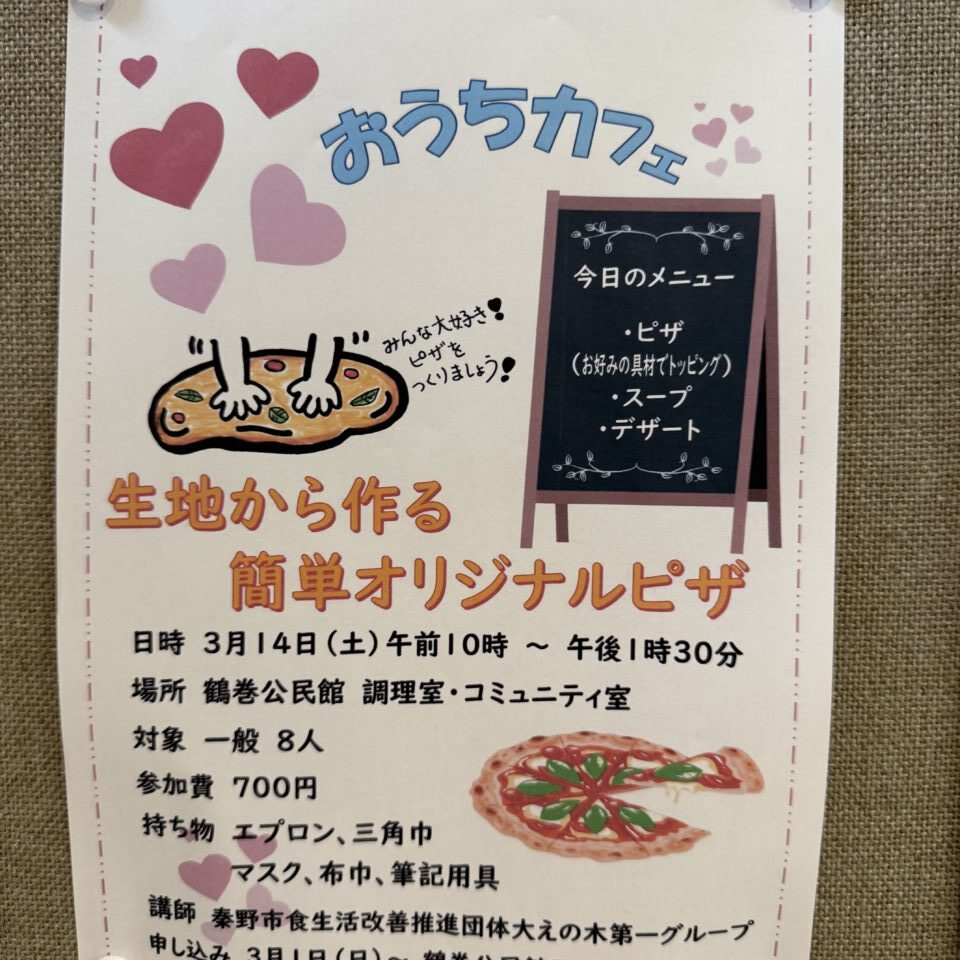 おうちカフェ
今日のメニュー
・ピザ
(お好みの具材でトッピング)
・スープ
・デザート
みんな大好き!
ピザを
つくりましょう!
生地から作る
簡単オリジナルピザ
日時 3月14日(土)午前10時 ~ 午後1時30分
場所 鶴巻公民館 調理室・コミュニティ室
対象 一般 8人
参加費 700円
持ち物 エプロン、三角巾
マスク、布巾、筆記用具
講師 秦野市食生活改善推進団体大えの木第一グループ
申し込み 3月1日(日)~ 鶴巻公民館